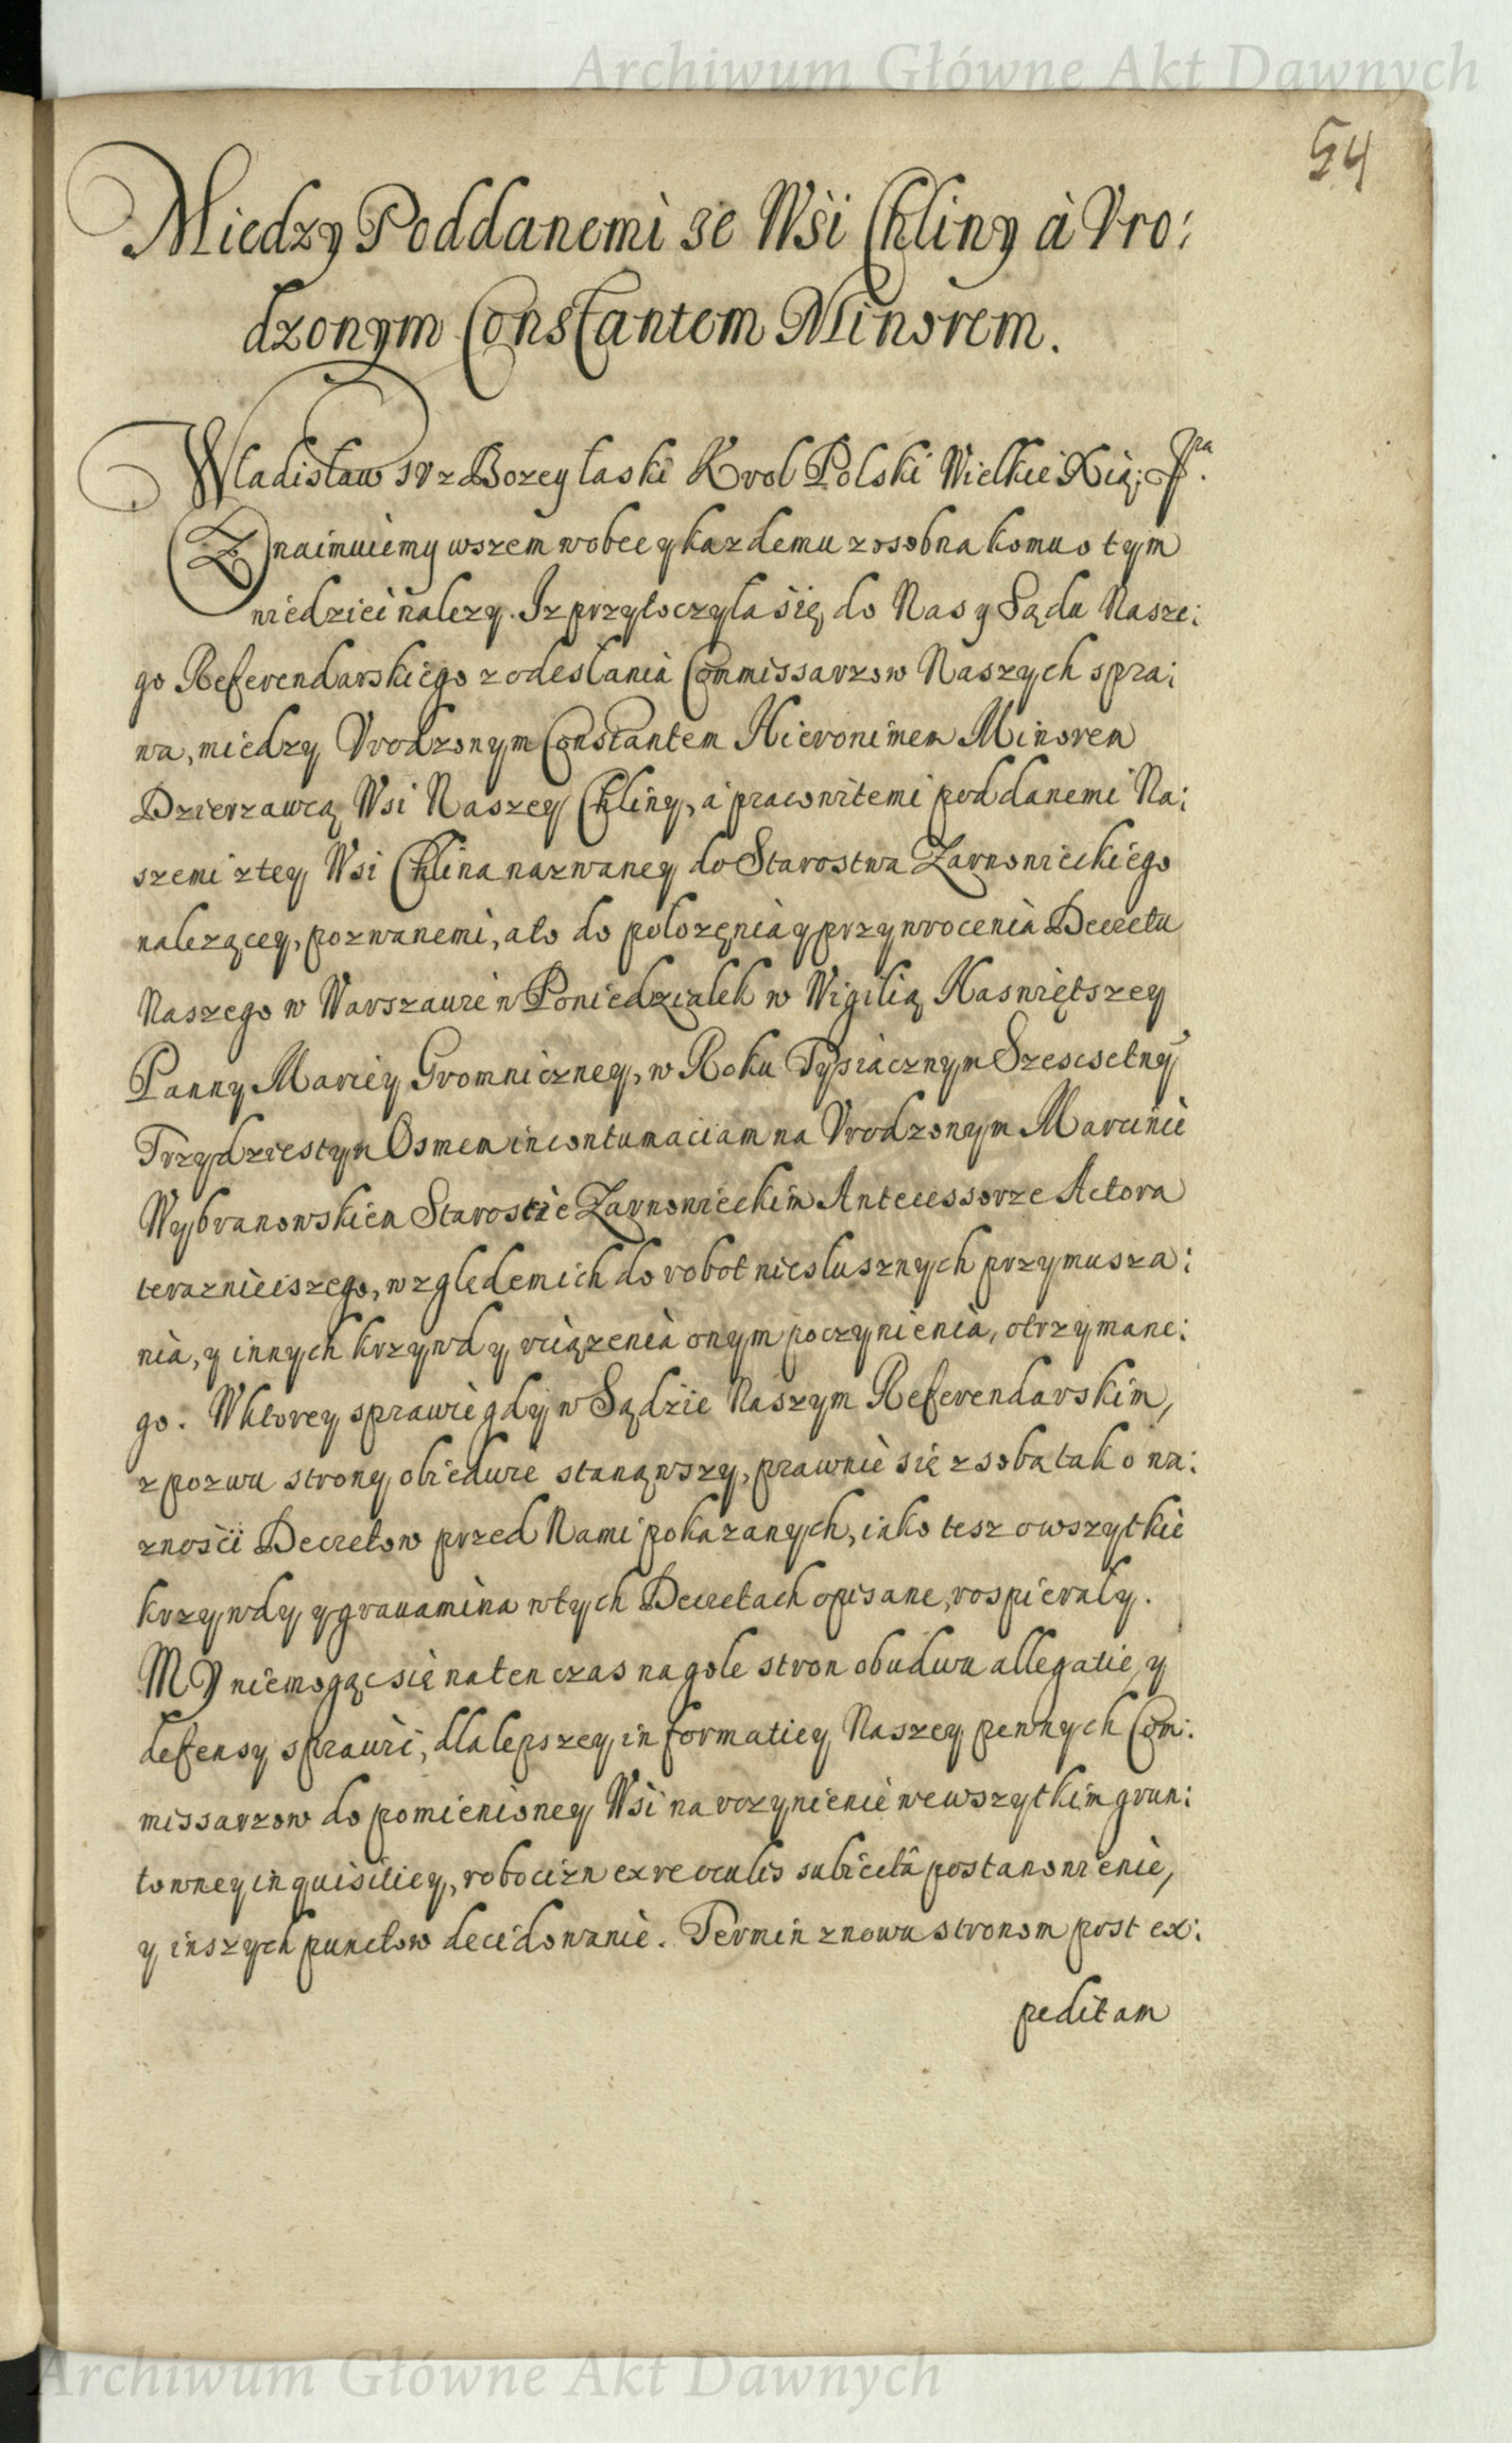 Archiwum Główne Akt Dawnych
54
Miedzy Poddanemi ze Wsi Chliny à Vro:
dzonym Constantem Minorem.
Wladisław IV z Bozey łaski Krol Polski Wielkie Xią: Pra.
Znaimuiemy wszem wobec y kazdemu zosobna komu o tym
niedziei nalezy. Iz przytoczyla się do Nas y Sądu Nasze:
go Referendarskiego z odesłania Commissarzow Naszych spra:
wa, miedzy Vrodzonym Constantem Hieronimem Minorem
Dzierzawcą Wsi Naszey Chliny, a pracowitemi poddanemi Na:
szemi z tey Wsi Chlina nazwaney do Starostwa Zarnowieckiego
nalezącey, pozwanemi, a to do polozęnia y przywrocenia Decretu
Naszego w Warszawie w Poniedzialek w Wigilią Naswiętszey
Panny Mariey Gromniczney, w Roku Tysiacznym Szescsetny
Trzydziestym Osmem in contumaciam na Vrodzonym Marcinie
Wybranowskiem Starostie Zarnowieckim Antecessorze Actora
teraznieiszego, wzgledem ich do robot nieslusznych przymusza:
nia, y innych krzywd y vciązenia onym poczynienia, otrzymane:
go. W ktorey sprawie gdy w Sądzie Naszym Referendarskim,
z pozwu strony obiedwie stanąwszy, prawnie się z sobą tak o wa:
znosci Decretow przed Nami pokazanych, iako tesz o wszytkie
krzywdy y grauamina w tych Decretach opisane, rospieraly.
MY niemogąc się na ten czas na gole stron obudwu allegatie, y
defensy sprawić, dla lepszey informatiey Naszey pewnych Com:
missarzow do pomienioney Wsi na vczynienie we wszytkim grun:
towney inquisitiey, robocizn ex re oculis subiecta postanowienie,
y inszych punctow decidowanie. Termin znowu stronom post ex:
peditam
Archiwum Główne Akt Dawnych